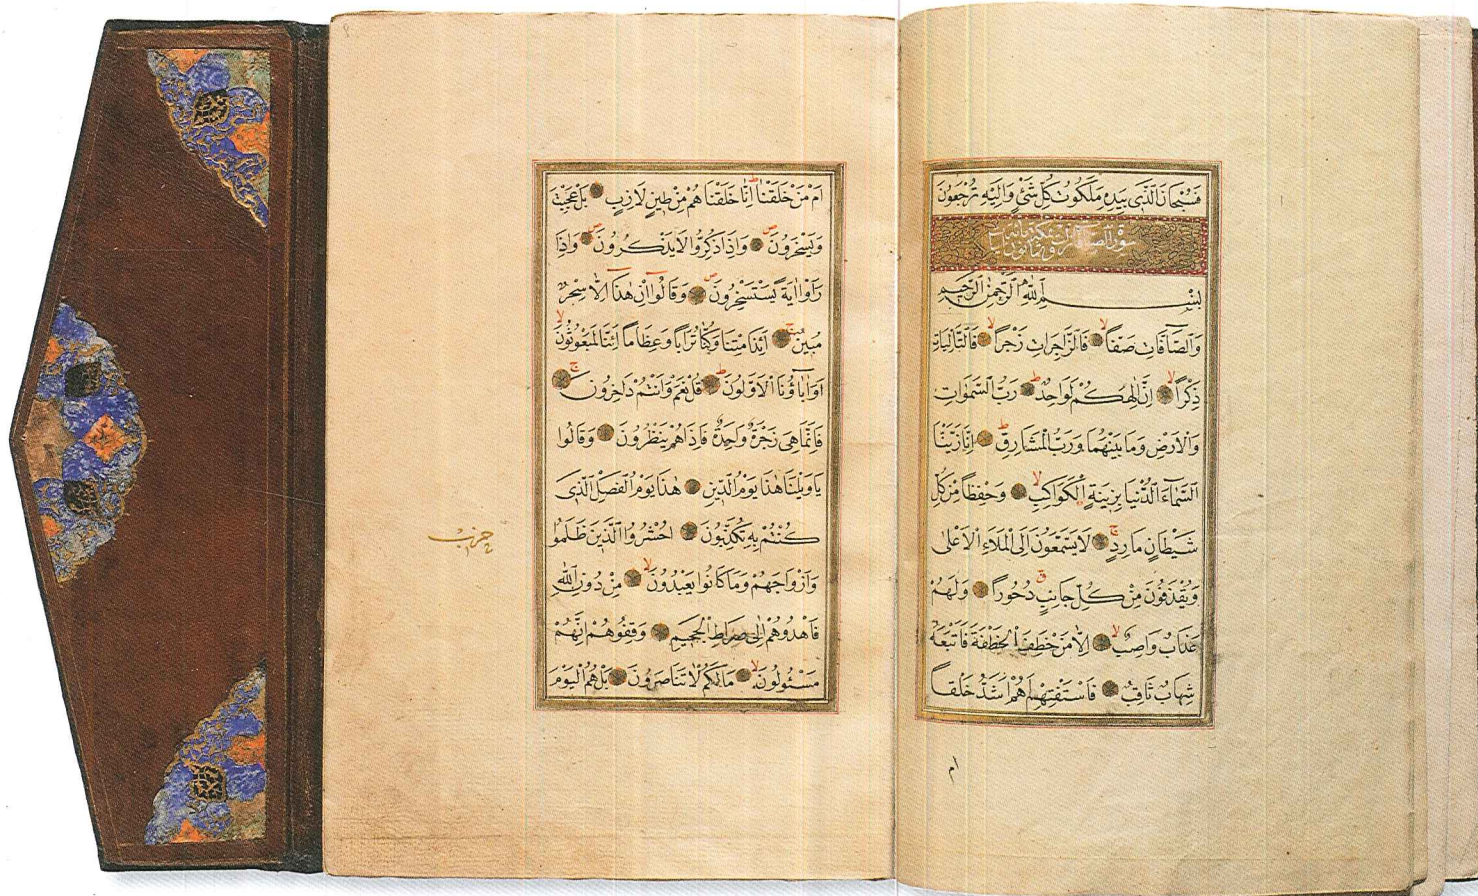 فَسُبْحَانَ الَّذِي بِيَدِهِ مَلَكُوتُ كُلِّ شَيْءٍ وَإِلَيْهِ تُرْجَعُونَ
سورة الصافات مكية مائة وثمانون آية
بِسْمِ اللّٰهِ الرَّحْمٰنِ الرَّحِيمِ
وَالصَّافَّاتِ صَفًّا فَالزَّاجِرَاتِ زَجْرًا فَالتَّالِيَاتِ
ذِكْرًا اِنَّ اِلٰهَكُمْ لَوَاحِدٌ رَبُّ السَّمٰوَاتِ
وَالْاَرْضِ وَمَا بَيْنَهُمَا وَرَبُّ الْمَشَارِقِ اِنَّا زَيَّنَّا
السَّمَاءَ الدُّنْيَا بِزِينَةٍ الْكَوَاكِبِ وَحِفْظًا مِنْ كُلِّ
شَيْطَانٍ مَارِدٍ لَا يَسَّمَّعُونَ اِلَى الْمَلَاءِ الْاَعْلٰى
وَيُقْذَفُونَ مِنْ كُلِّ جَانِبٍ دُحُورًا وَلَهُمْ
عَذَابٌ وَاصِبٌ اِلَّا مَنْ خَطِفَ الْخَطْفَةَ فَاَتْبَعَهُ
شِهَابٌ ثَاقِبٌ فَاسْتَفْتِهِمْ اَهُمْ اَشَدُّ خَلْقًا
ام
اَمْ مَنْ خَلَقْنَا اِنَّا خَلَقْنَاهُمْ مِنْ طِينٍ لَازِبٍ بَلْ عَجِبْتَ
وَيَسْخَرُونَ وَاِذَا ذُكِّرُوا لَا يَذْكُرُونَ وَاِذَا
رَاَوْا اٰيَةً يَسْتَسْخِرُونَ وَقَالُوا اِنْ هٰذَا اِلَّا سِحْرٌ
مُبِينٌ ءَاِذَا مِتْنَا وَكُنَّا تُرَابًا وَعِظَامًا ءَاِنَّا لَمَبْعُوثُونَ
اَوَاٰبَاؤُنَا الْاَوَّلُونَ قُلْ نَعَمْ وَاَنْتُمْ دَاخِرُونَ
فَاِنَّمَا هِيَ زَجْرَةٌ وَاحِدَةٌ فَاِذَا هُمْ يَنْظُرُونَ وَقَالُوا
يَا وَيْلَنَا هٰذَا يَوْمُ الدِّينِ هٰذَا يَوْمُ الْفَصْلِ الَّذِي
كُنْتُمْ بِهِ تُكَذِّبُونَ اُحْشُرُوا الَّذِينَ ظَلَمُوا
وَاَزْوَاجَهُمْ وَمَا كَانُوا يَعْبُدُونَ مِنْ دُونِ اللّٰهِ
فَاهْدُوهُمْ اِلٰى صِرَاطِ الْجَحِيمِ وَقِفُوهُمْ اِنَّهُمْ
مَسْئُولُونَ مَالَكُمْ لَا تَنَاصَرُونَ بَلْ هُمُ الْيَوْمَ
حزب